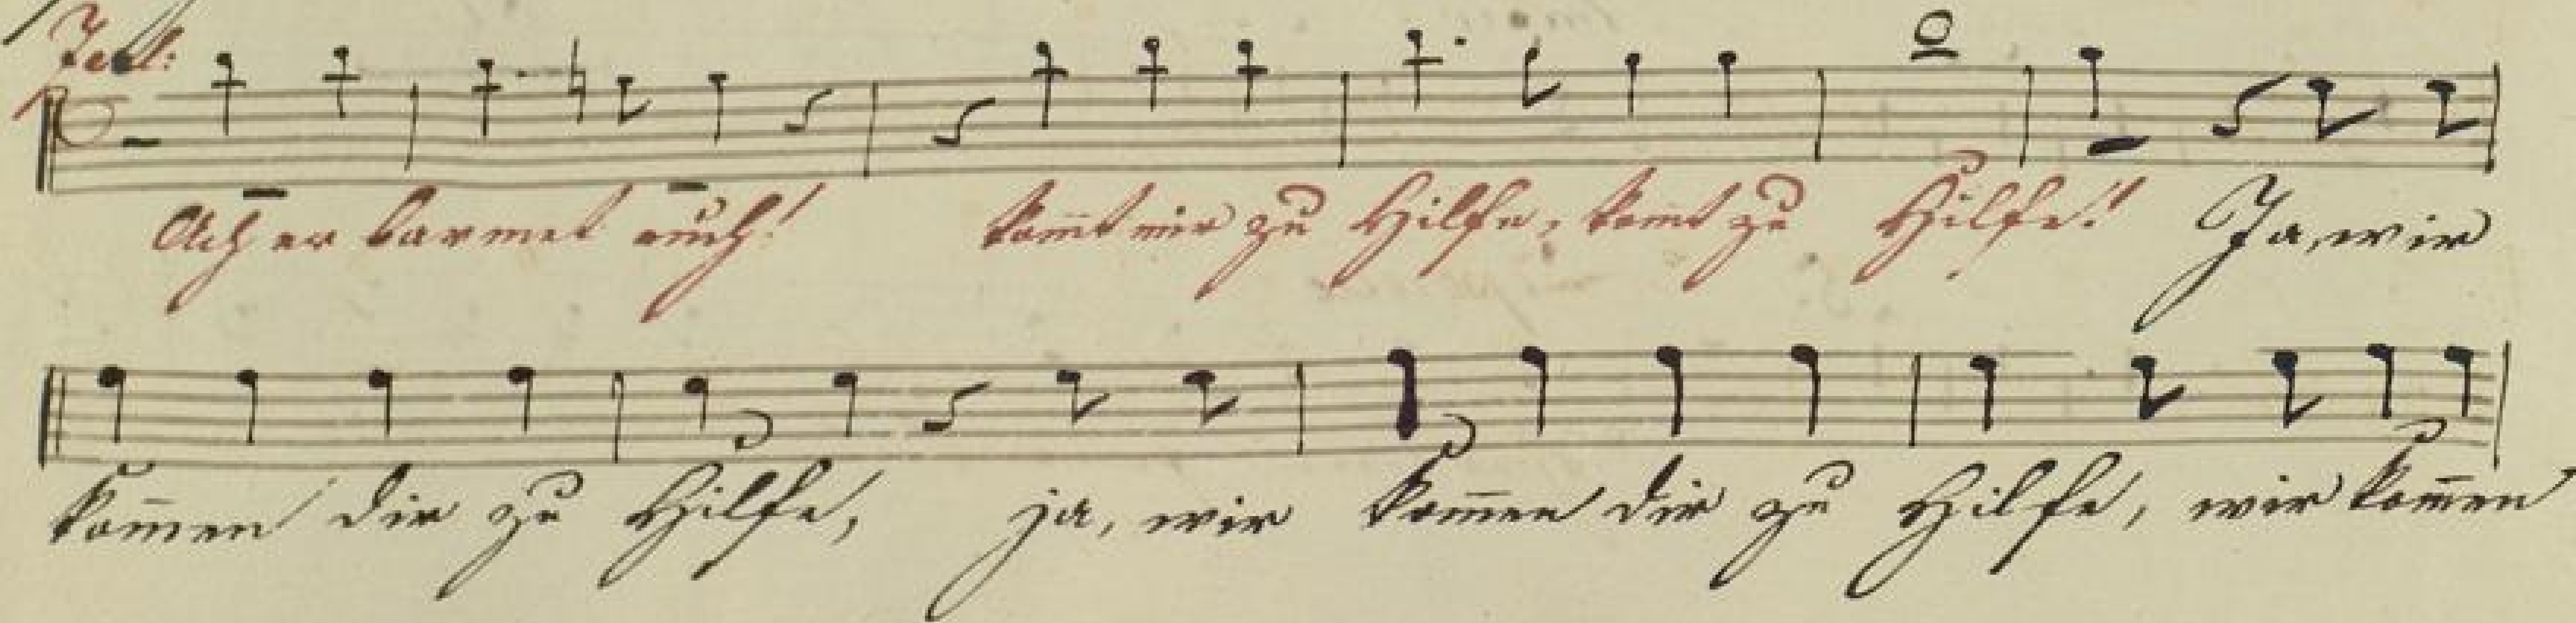 Ach erbarmet euch! kom̅t mir zu Hilfe, kom̅t zu Hilfe! Ja, wir
kom̅en dir zu Hilfe, ja, wir kom̅en dir zu Hilfe, wir kom̅en